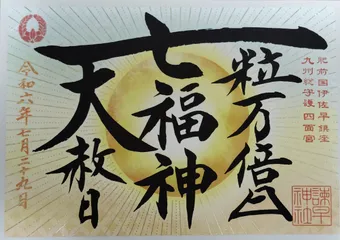 肥前国伊佐早鎮座
九州総守護 四面宮
一粒万倍日
七福神
天赦日
令和六年七月二十九日
諫早神社